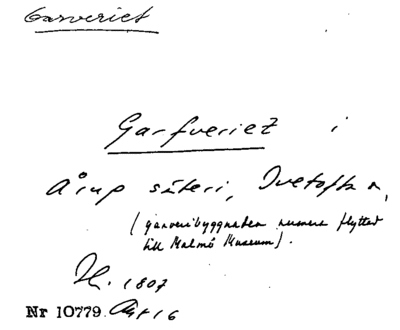 Garveriet
Garfveriet i
Årup säteri, Ivetofta n,
(garveribyggnaden numera flyttad
till Malmö Museum).
1807
Nr 10779. 16